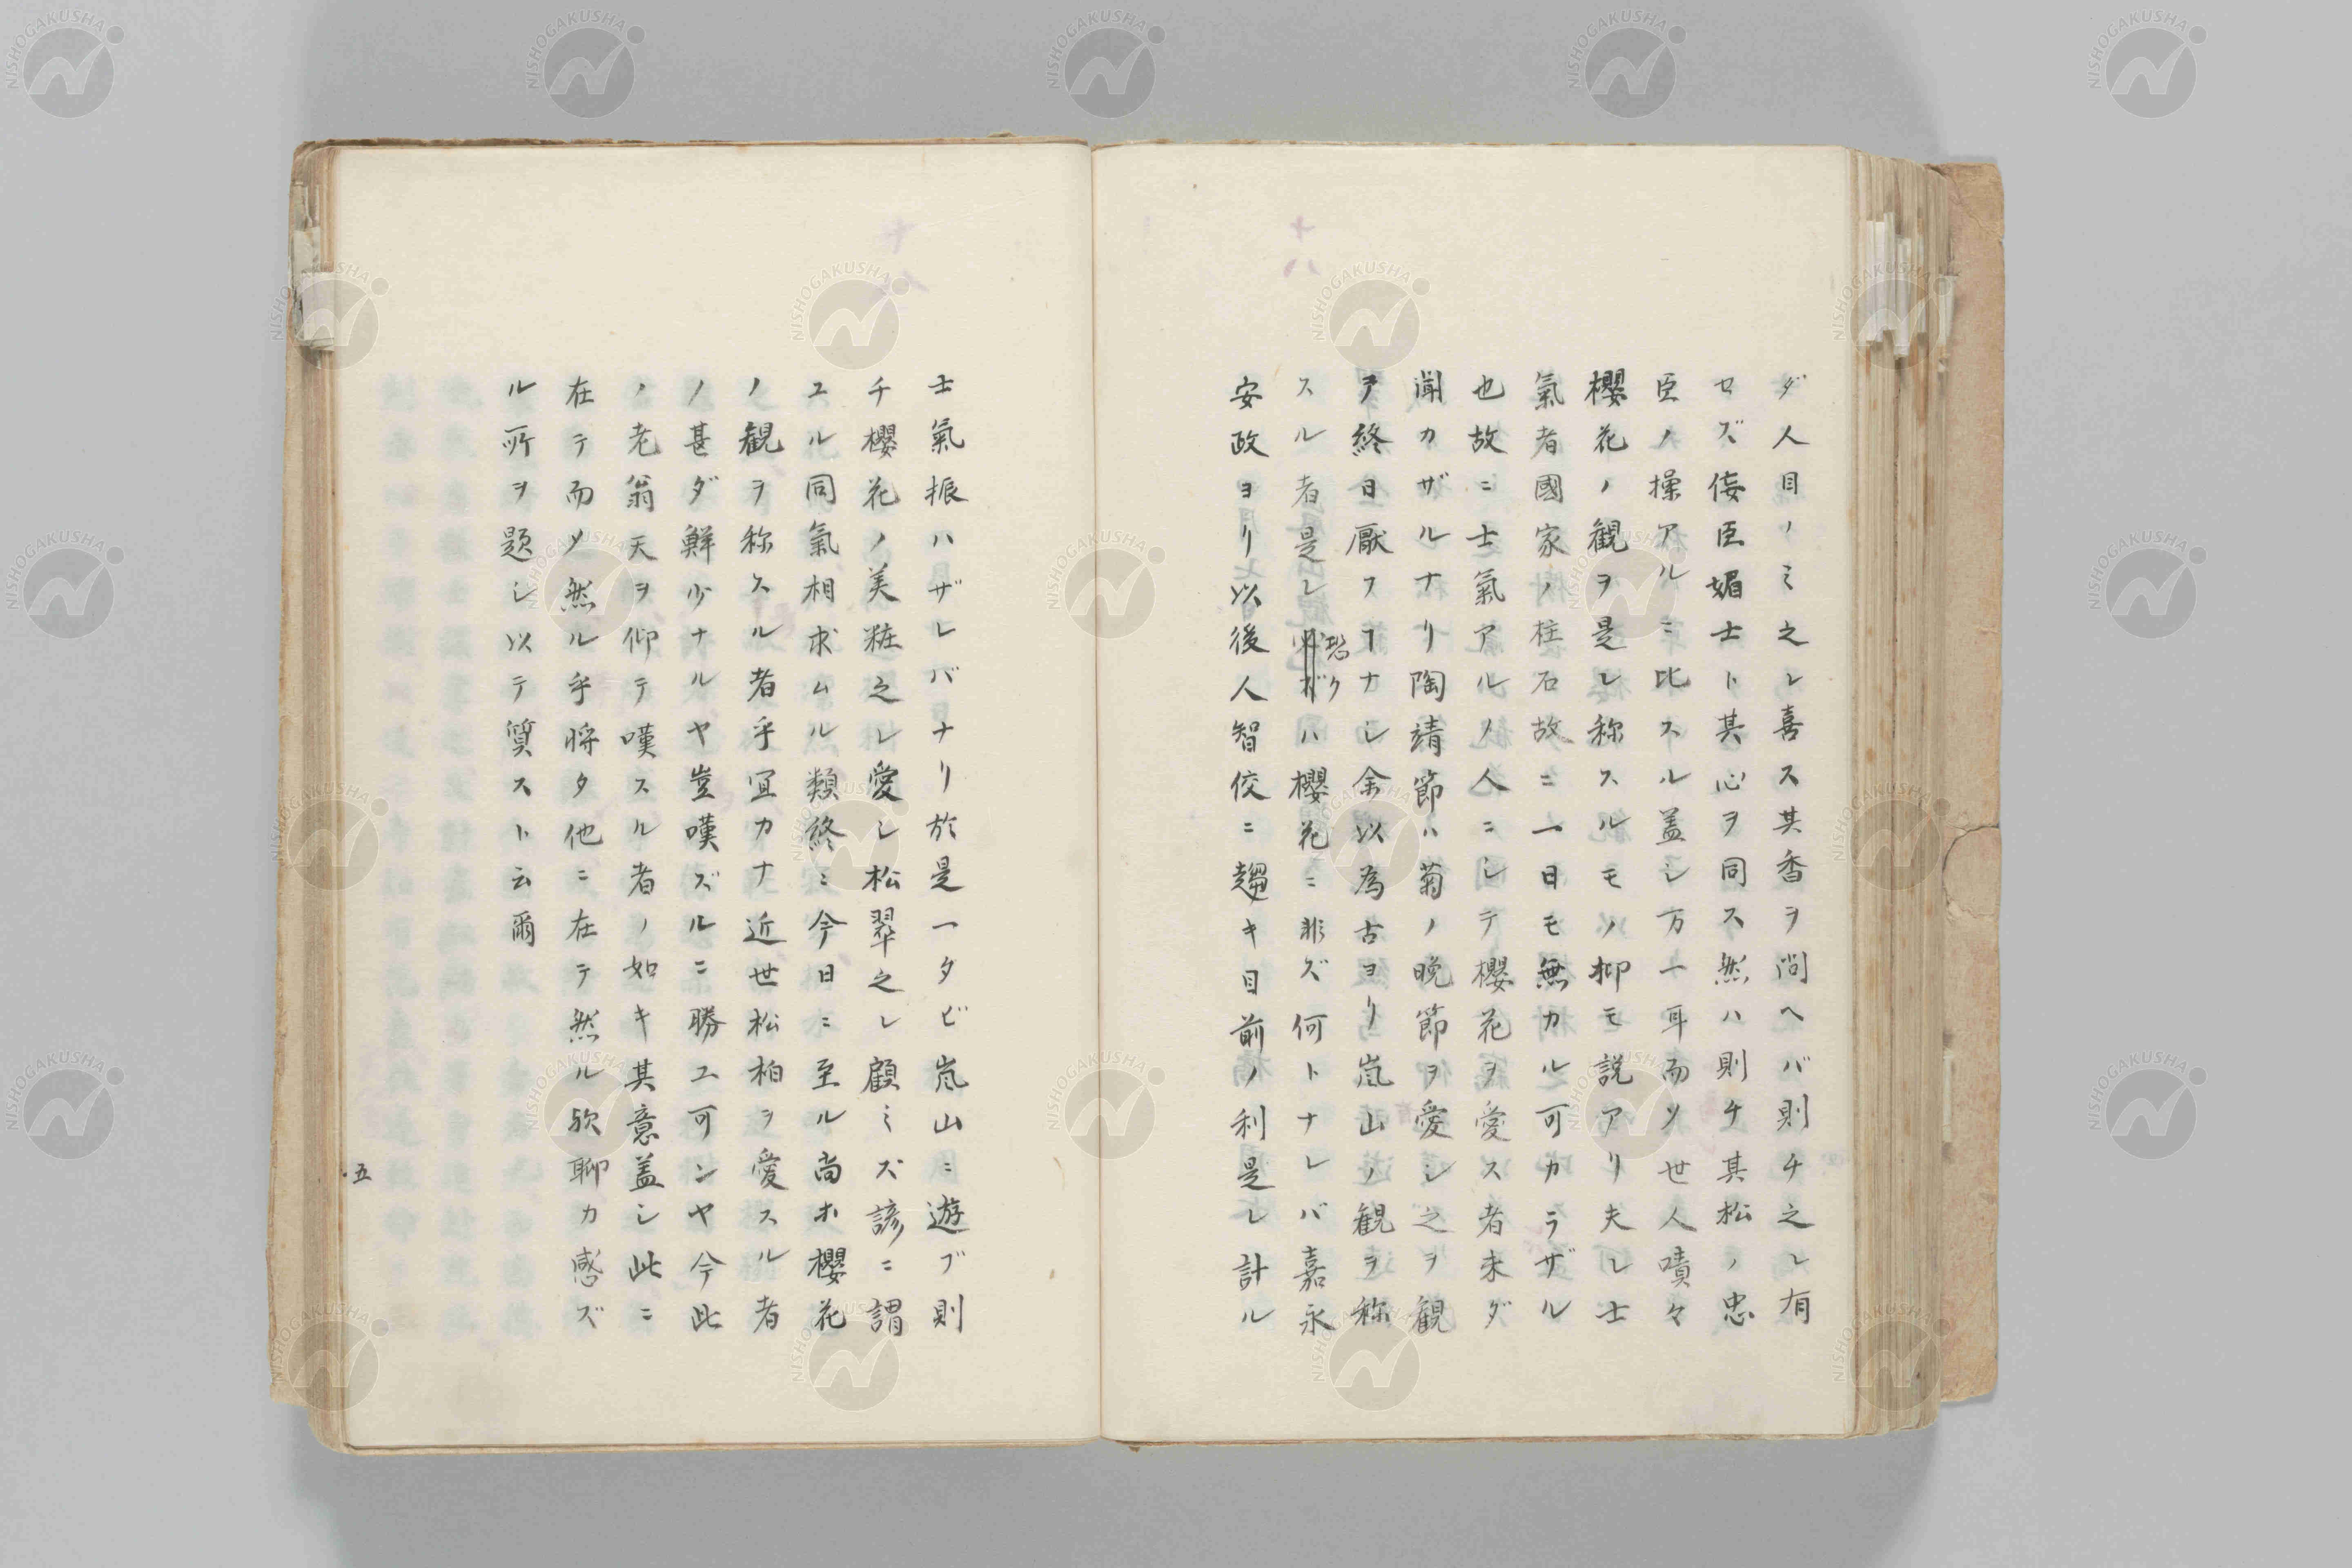 ダ人目ノミ之レ喜ス其香ヲ問ヘバ則チ之レ有
セズ侫臣媚士ト其心ヲ同ス然ハ則チ其松ノ忠
臣ノ操アルニ比スル盖シ万一耳而ソ世人嘖々
櫻花ノ観ヲ是レ称スルモノ抑モ説アリ夫レ士
氣者國家ノ柱石故ニ一日モ無カル可カラザル
也故ニ士氣アルノ人ニシテ櫻花ヲ愛ス者未ダ
聞カザルナリ陶靖節ハ菊ノ晩節ヲ愛シ之ヲ観
ヲ終日厭フヿナシ余以為古ヨリ嵐山ノ観ヲ称
スル者是レ恐クハ櫻花ニ非ズ何トナレバ嘉永
安政ヨリ以後人智佼ニ趨キ目前ノ利是レ計ル
士氣振ハザレバナリ於是一タビ嵐山ニ遊ブ則
チ櫻花ノ美粧之レ愛シ松翠之レ顧ミズ諺ニ謂
ユル同氣相求ムル類終ニ今日ニ至ル尚ホ櫻花
ノ観ヲ称スル者乎宜カナ近世松柏ヲ愛スル者
ノ甚ダ鮮少ナルヤ豈嘆ズルニ勝ユ可ンヤ今此
ノ老翁天ヲ仰テ嘆スル者ノ如キ其意盖シ此ニ
在テ而ソ然ル乎将タ他ニ在テ然ル欤聊カ感ズ
ル所ヲ題シ以テ質スト云爾
五
十八
NISHOGAKUSHA